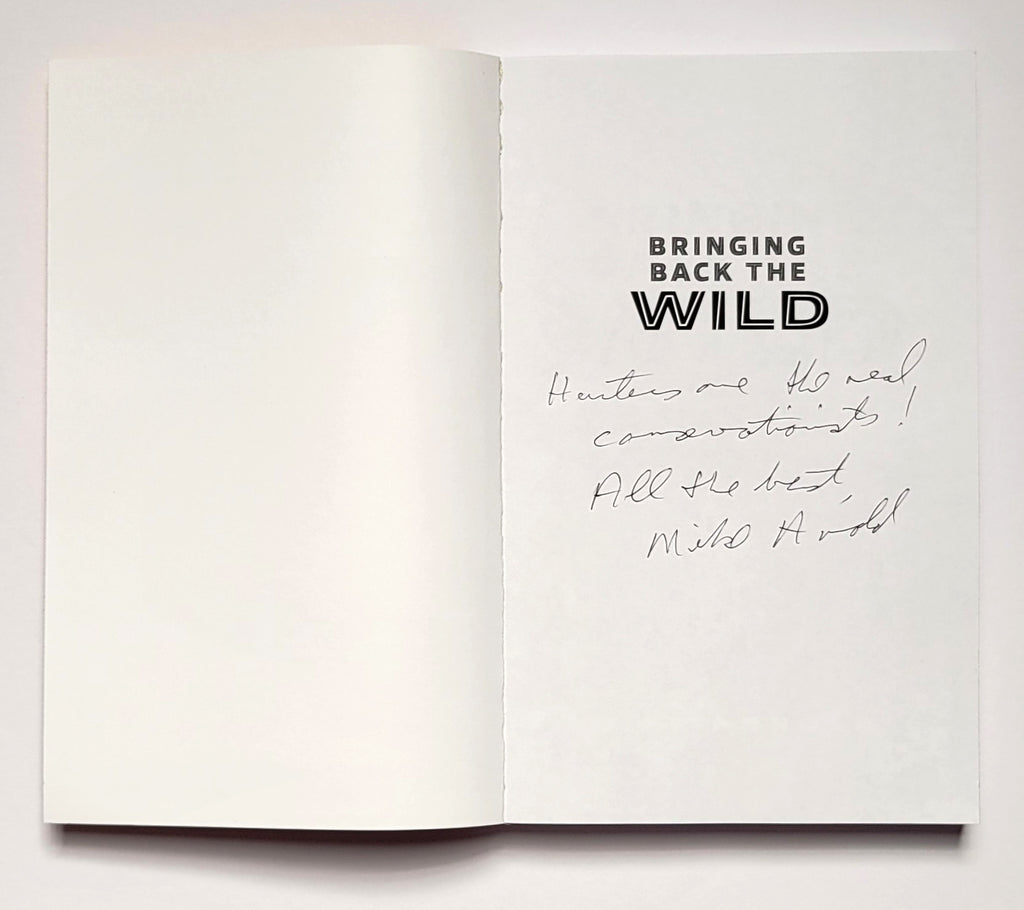 BRINGING
BACK THE
WILD
Hunters are the real
conservationists!
All the best,
Mike Arnold